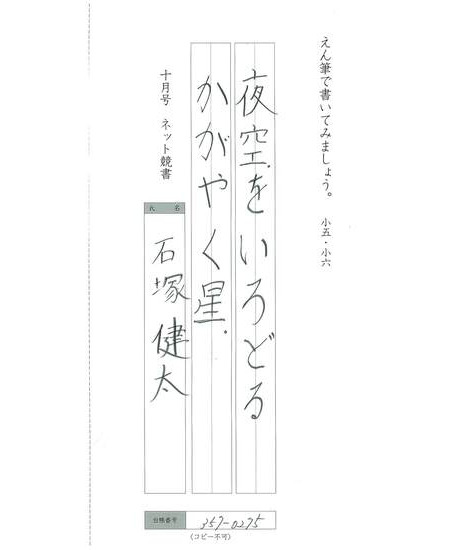 えん筆で書いてみましょう。 小五・小六
夜空をいろどる
かがやく星
十月号 ネット競書
氏 名
石塚 健太
会務番号 357-0275
(コピー不可)